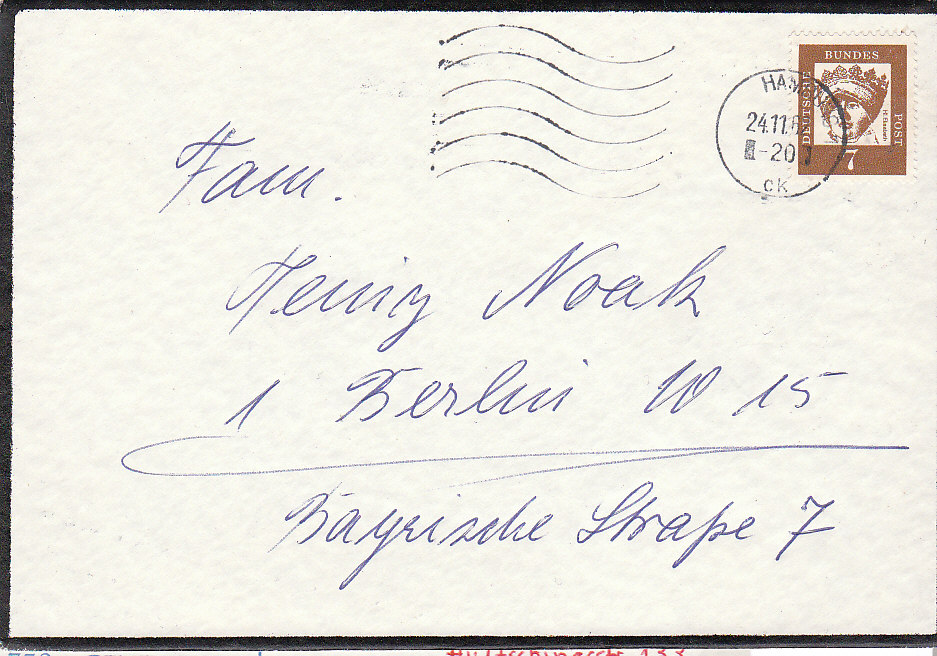 DEUTSCHE
BUNDES
POST
7
HAMBURG
24.11.6
-20
ck
Fam.
Heinz Noak
1 Berlin W 15
Bayrische Straße 7